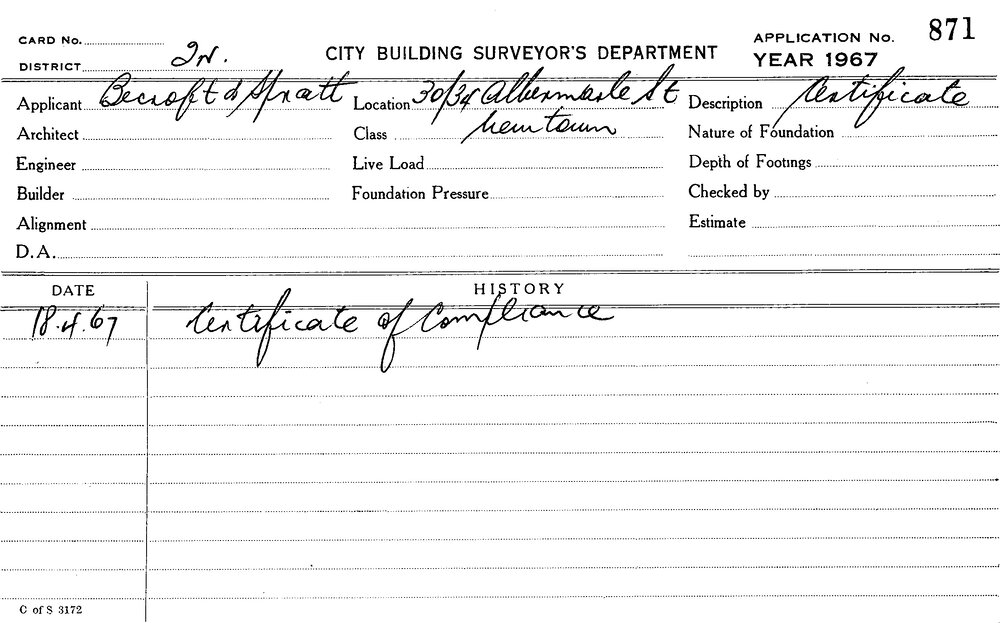 CARD No.
DISTRICT
CITY BUILDING SURVEYOR'S DEPARTMENT
APPLICATION No. 871
YEAR 1967
Applicant Becroft & Spratt Location 30/34 Albermarle St Description Certificate
Architect Class Newtown Nature of Foundation
Engineer Live Load Depth of Footings
Builder Foundation Pressure Checked by
Alignment Estimate
D.A.
DATE HISTORY
18.4.67 Certificate of Compliance
C of S 3172